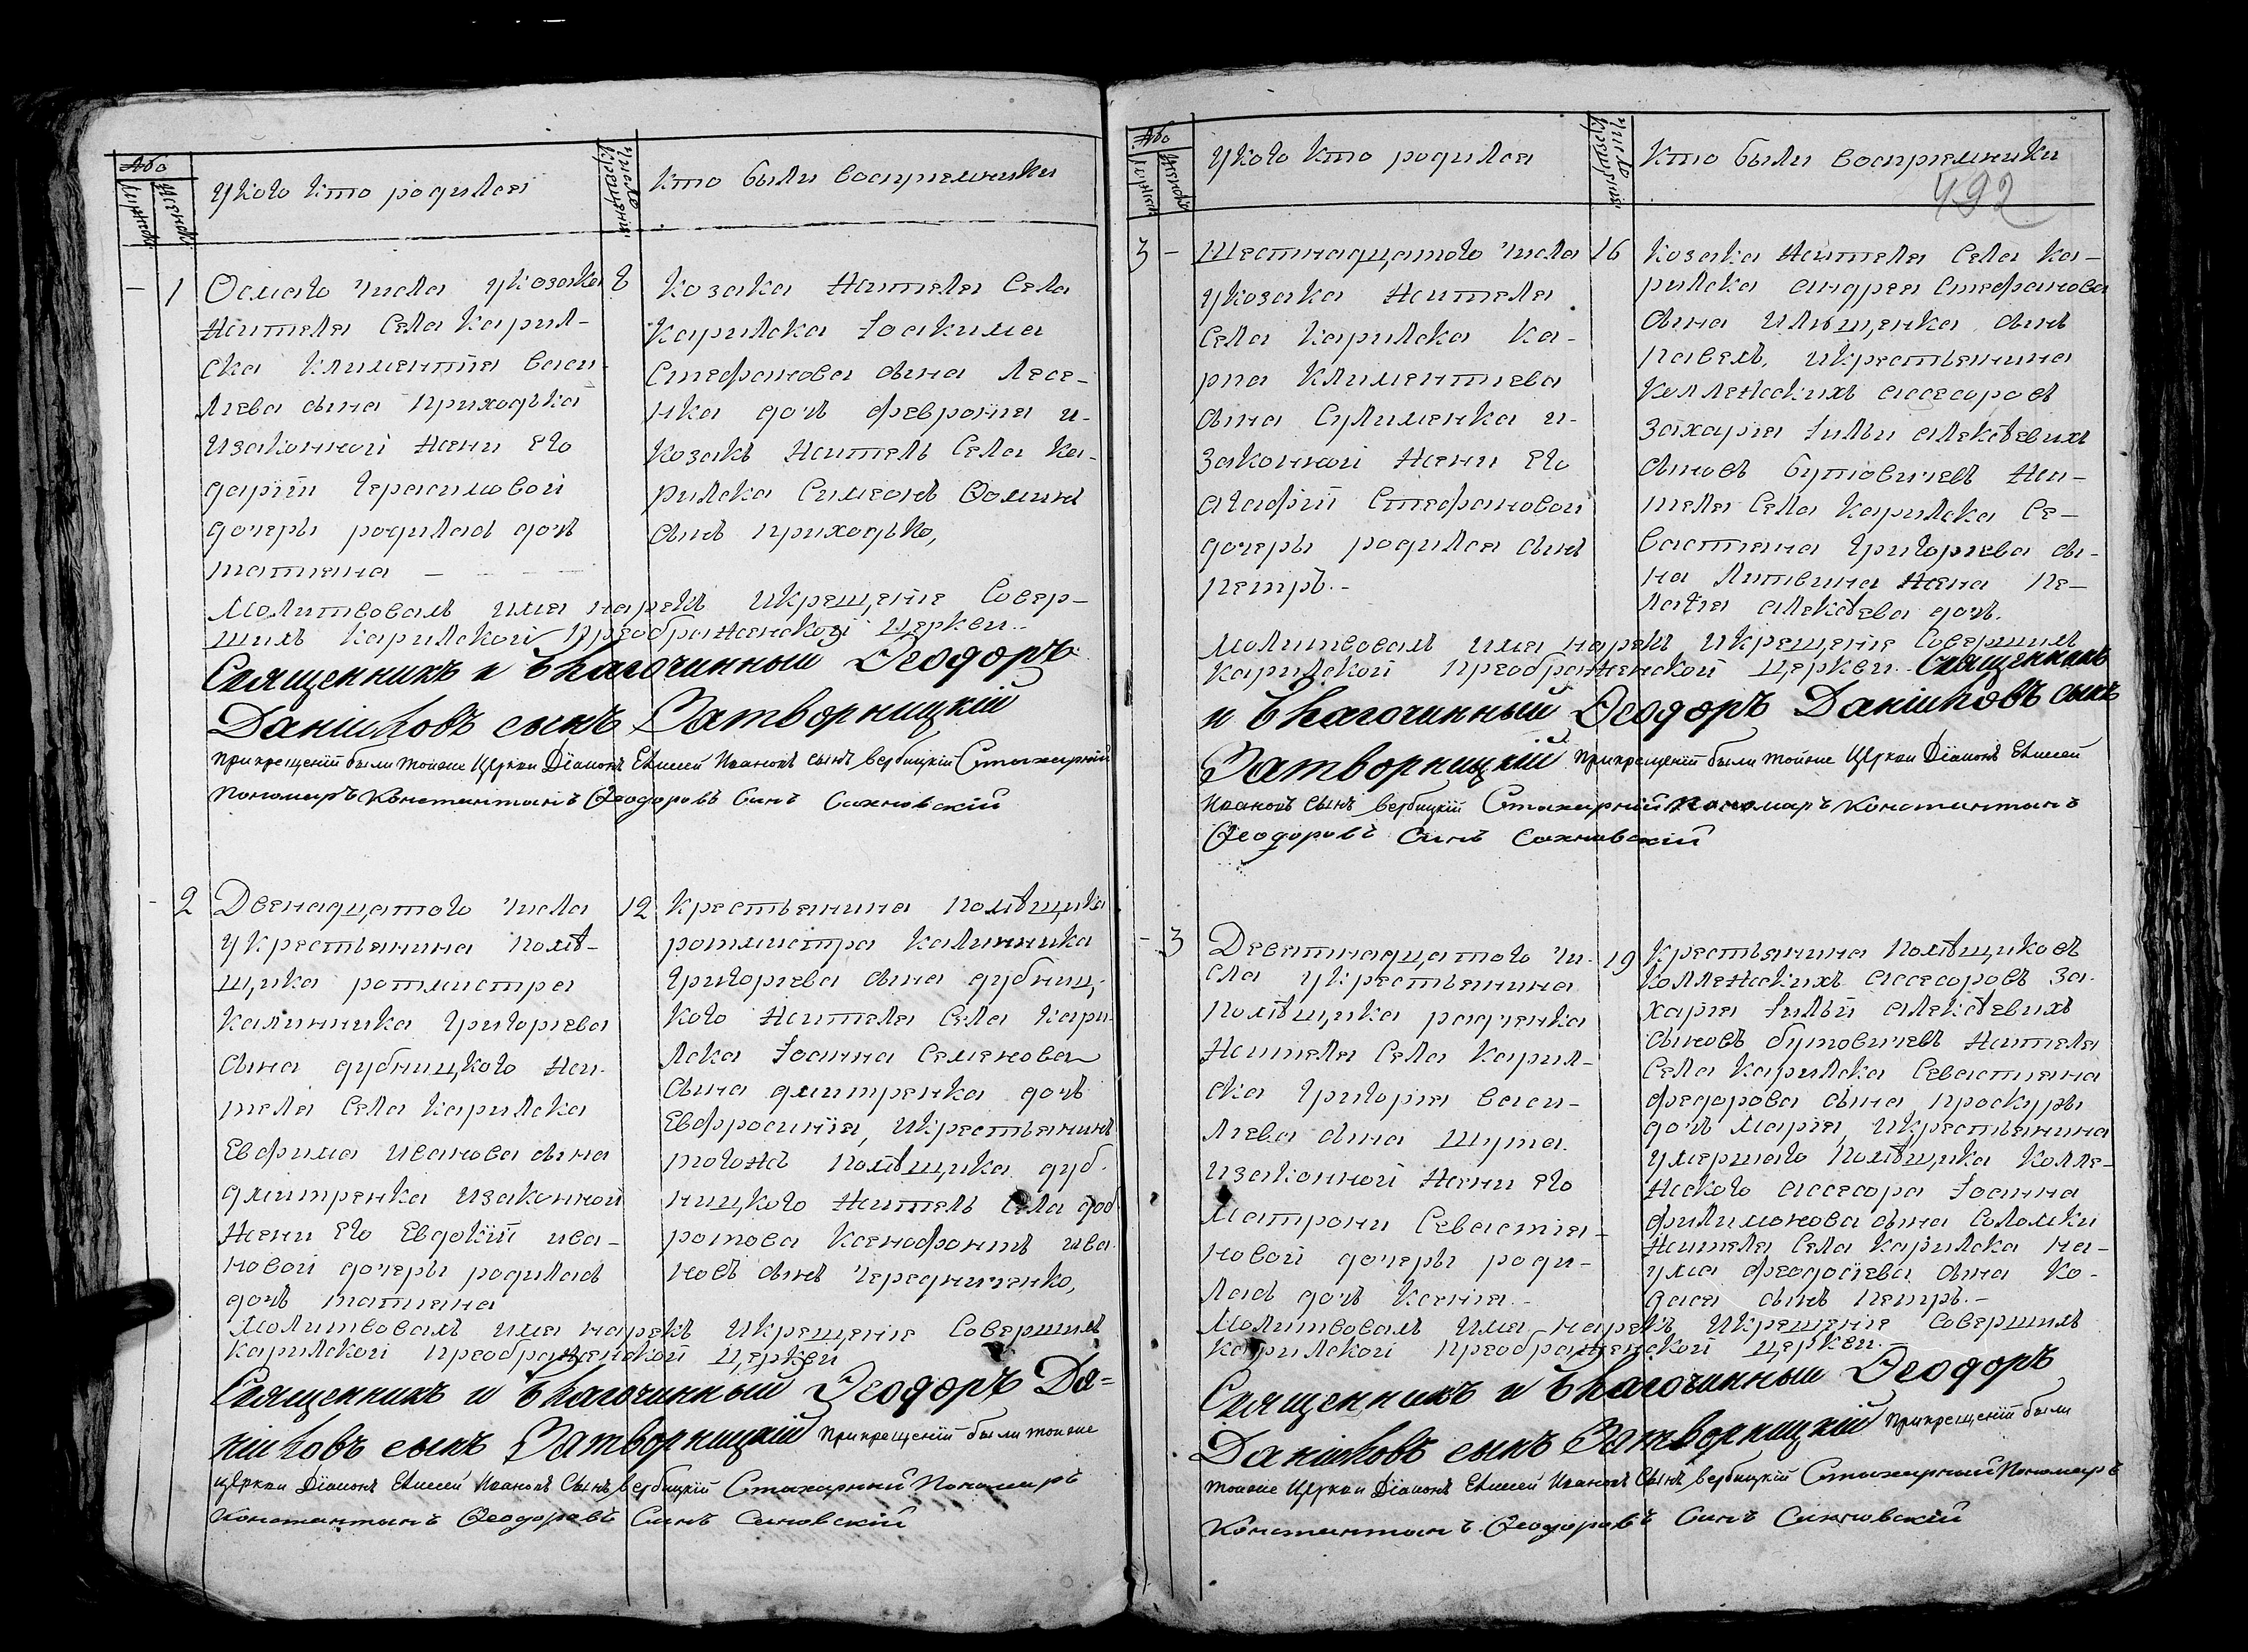 Число крещенія
У кого кто родился
кто были восприемники
1
Осмаго числа у козака
жителя села Карил-
ска Климентія Васи-
лиева сына Приходька
и законной жени его
Даріи Герасимовой
дочеры родилась дочь
Татияна
8
козака жителя села
Карилска Іоакима
Стефанова сына Лесе-
нка дочь Феврония и
козакъ житель села Ка-
рилска Симеонъ Ѳоминъ
сынъ Приходько,
Молитвовалъ имя нарекъ и крещеніе совер-
шилъ Карилской Преображенской церкви
Священникъ и благочинный Ѳеодоръ
Даніиловъ сынъ Затворницкій
При крещеніи были тойже церкви Діаконъ Елисей Ивановъ сынъ Вербицкій Стихарный
Пономаръ Константинъ Ѳеодоровъ Синъ Сахновскій
2
Двенадцатого числа
у крестьянина помѣ-
щика ротмистра
Калинника Григориева
сына Дубницкого жи-
теля села Карилска
Евфима Иванова сына
Дмитренка и законной
жени его Евдокіи Ива-
новой дочеры родилась
дочь Татияна
12
крестьянина помѣщика
ротмистра Калинника
Григориева сына Дубниц-
кого жителя села Кари-
лска Іоанна Семенова
сына Дмитренка дочь
Евфросинія, и крестьянинъ
тогожъ помѣщика Дуб-
ницкого житель села Доб-
ротова Ксенофонтъ Ива-
новъ сынъ Чередниченко,
Молитвовалъ имя нарекъ и крещеніе совершилъ
Карилской Преображенской церкви
Священникъ и благочинный Ѳеодоръ Да=
ніиловъ сынъ Затворницкій При крещеніи были тойже
церкви Діаконъ Елисей Ивановъ Сынъ Вербицкій Стихарный Пономаръ
Константинъ Ѳеодоровъ Синъ Сахновскій
Число крещенія
У кого кто родился
кто были восприемники
492
3
Шестнадцатого числа
у козака жителя
села Карилска Ка-
рпа Климентиева
сына Сулименка и
законной жени его
Агафіи Стефановой
дочеры родился сынъ
Петръ.-
16
козака жителя села Ка-
рилска Андрея Стефанова
сына Ильщенка сынъ
Павелъ, и крестьянина
коллежскихъ ассесоровъ
Захария і Ильи Алексѣевихъ
сыновъ Бутовичевъ жи-
теля села Карилска Се-
вастияна Григориева сы-
на Литвина жена Пе-
лагия Алексѣева дочь.
Молитвовалъ имя нарекъ и крещеніе совершилъ
Карилской Преображенской церкви Священникъ
и благочинный Ѳеодоръ Даніиловъ сынъ
Затворницкій При крещеніи были тойже церкви Діаконъ Елисей
Ивановъ Сынъ Вербицкій Стихарный Пономаръ Константинъ
Ѳеодоровъ Синъ Сахновскій
3
Деветнадцатого чи-
сла у крестьянина
помѣщика Радченка
жителя села Карил-
ска Григория Васи-
лиева сына Шута
и законной жени его
Матрони Севастия-
новой дочеры роди-
лась дочь Ксения.-
19
крестьянина помѣщиковъ
коллежскихъ ассесоровъ За-
хария і Ильи Алексѣевихъ
сыновъ Бутовичевъ жителя
села Карилска Севастияна
Федорова сына Проскуры
дочь Мария, и крестьянина
умершаго помѣщика колле-
жского ассесора Іоанна
Филимонова сына Соломки
жителя села Карилска На-
ума Феодосиева сына Ко-
дася сынъ Петръ.-
Молитвовалъ имя нарекъ и крещеніе совершилъ
Карилской Преображенской церкви.-
Священникъ и благочинный Ѳеодоръ
Даніиловъ сынъ Затворницкій При крещеніи были
тойже церкви Діаконъ Елисей Ивановъ Сынъ Вербицкій Стихарный Пономаръ
Константинъ Ѳеодоровъ Синъ Сахновскій